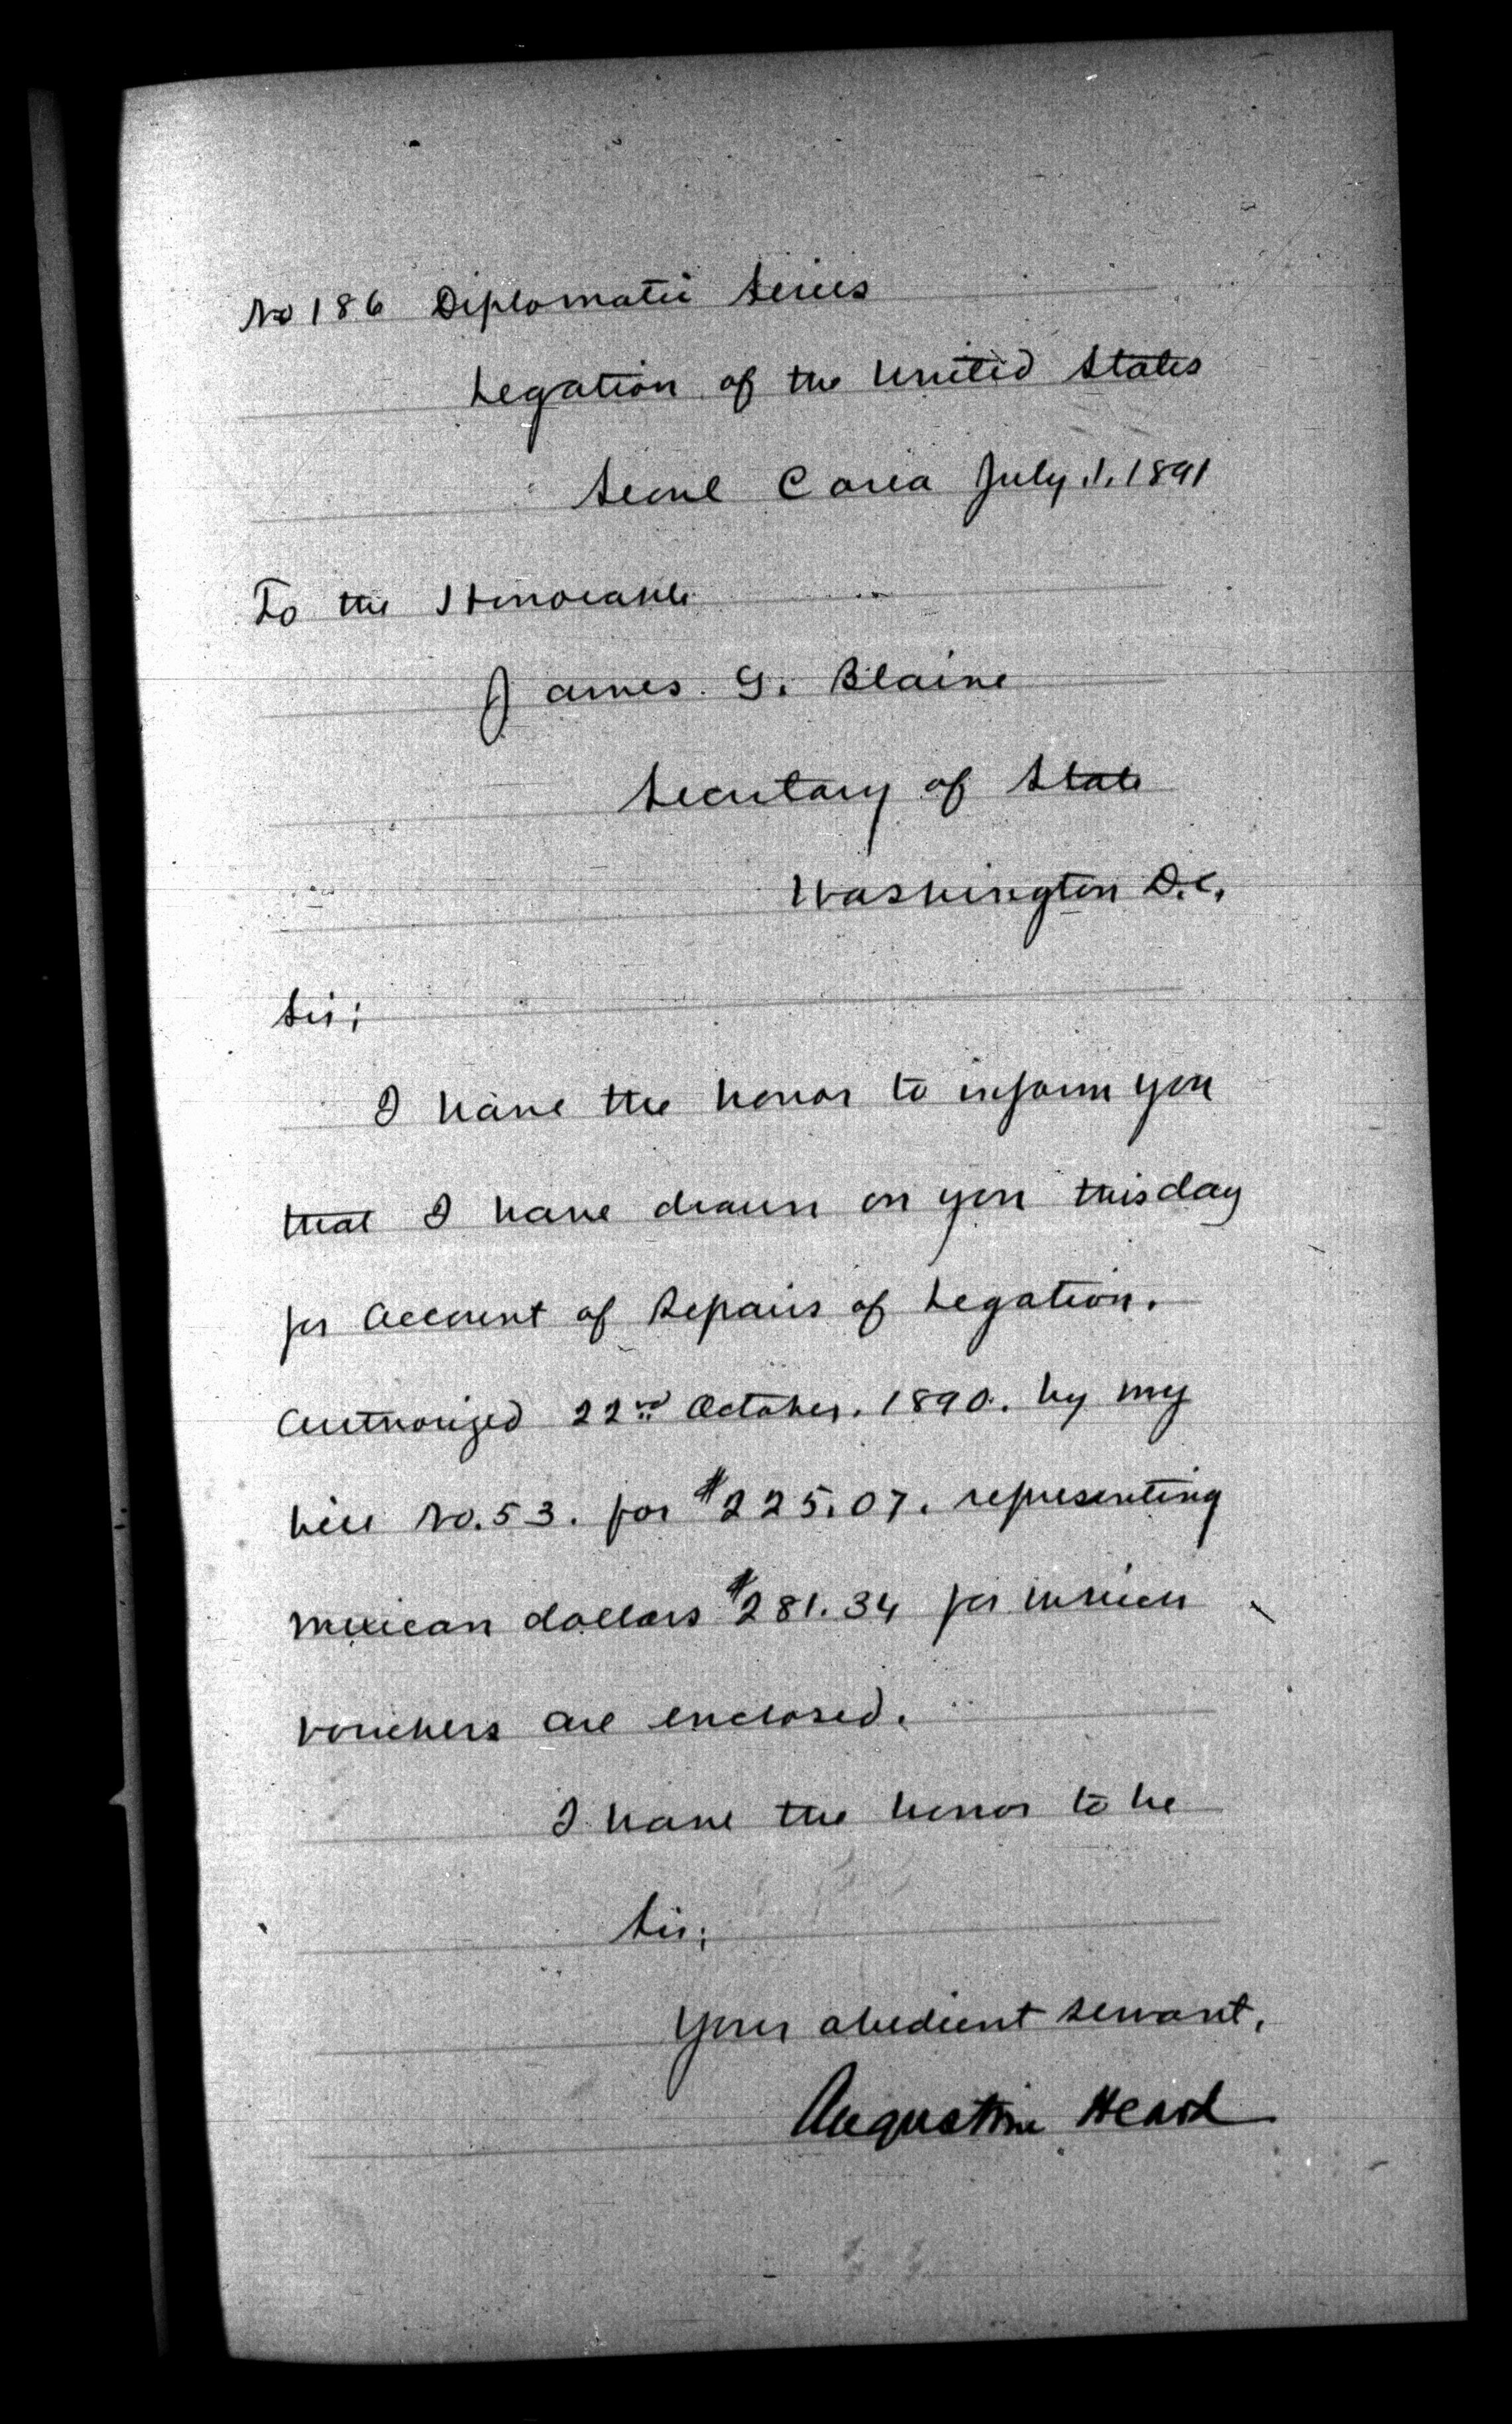 No 186 Diplomatic Series
Legation of the United States
Seoul Corea July. 1. 1891
To the Honorable
James G. Blaine
Secretary of State
Washington D.C.
Sir;
I have the honor to inform you
that I have drawn on you this day
for Account of Repairs of Legation.
Authorized 22nd October. 1890. by my
bill No. 53. for $225.07. representing
Mexican dollars $281.34 for which
vouchers are enclosed.
I have the honor to be
Sir;
Your obedient servant,
Augustine Heard